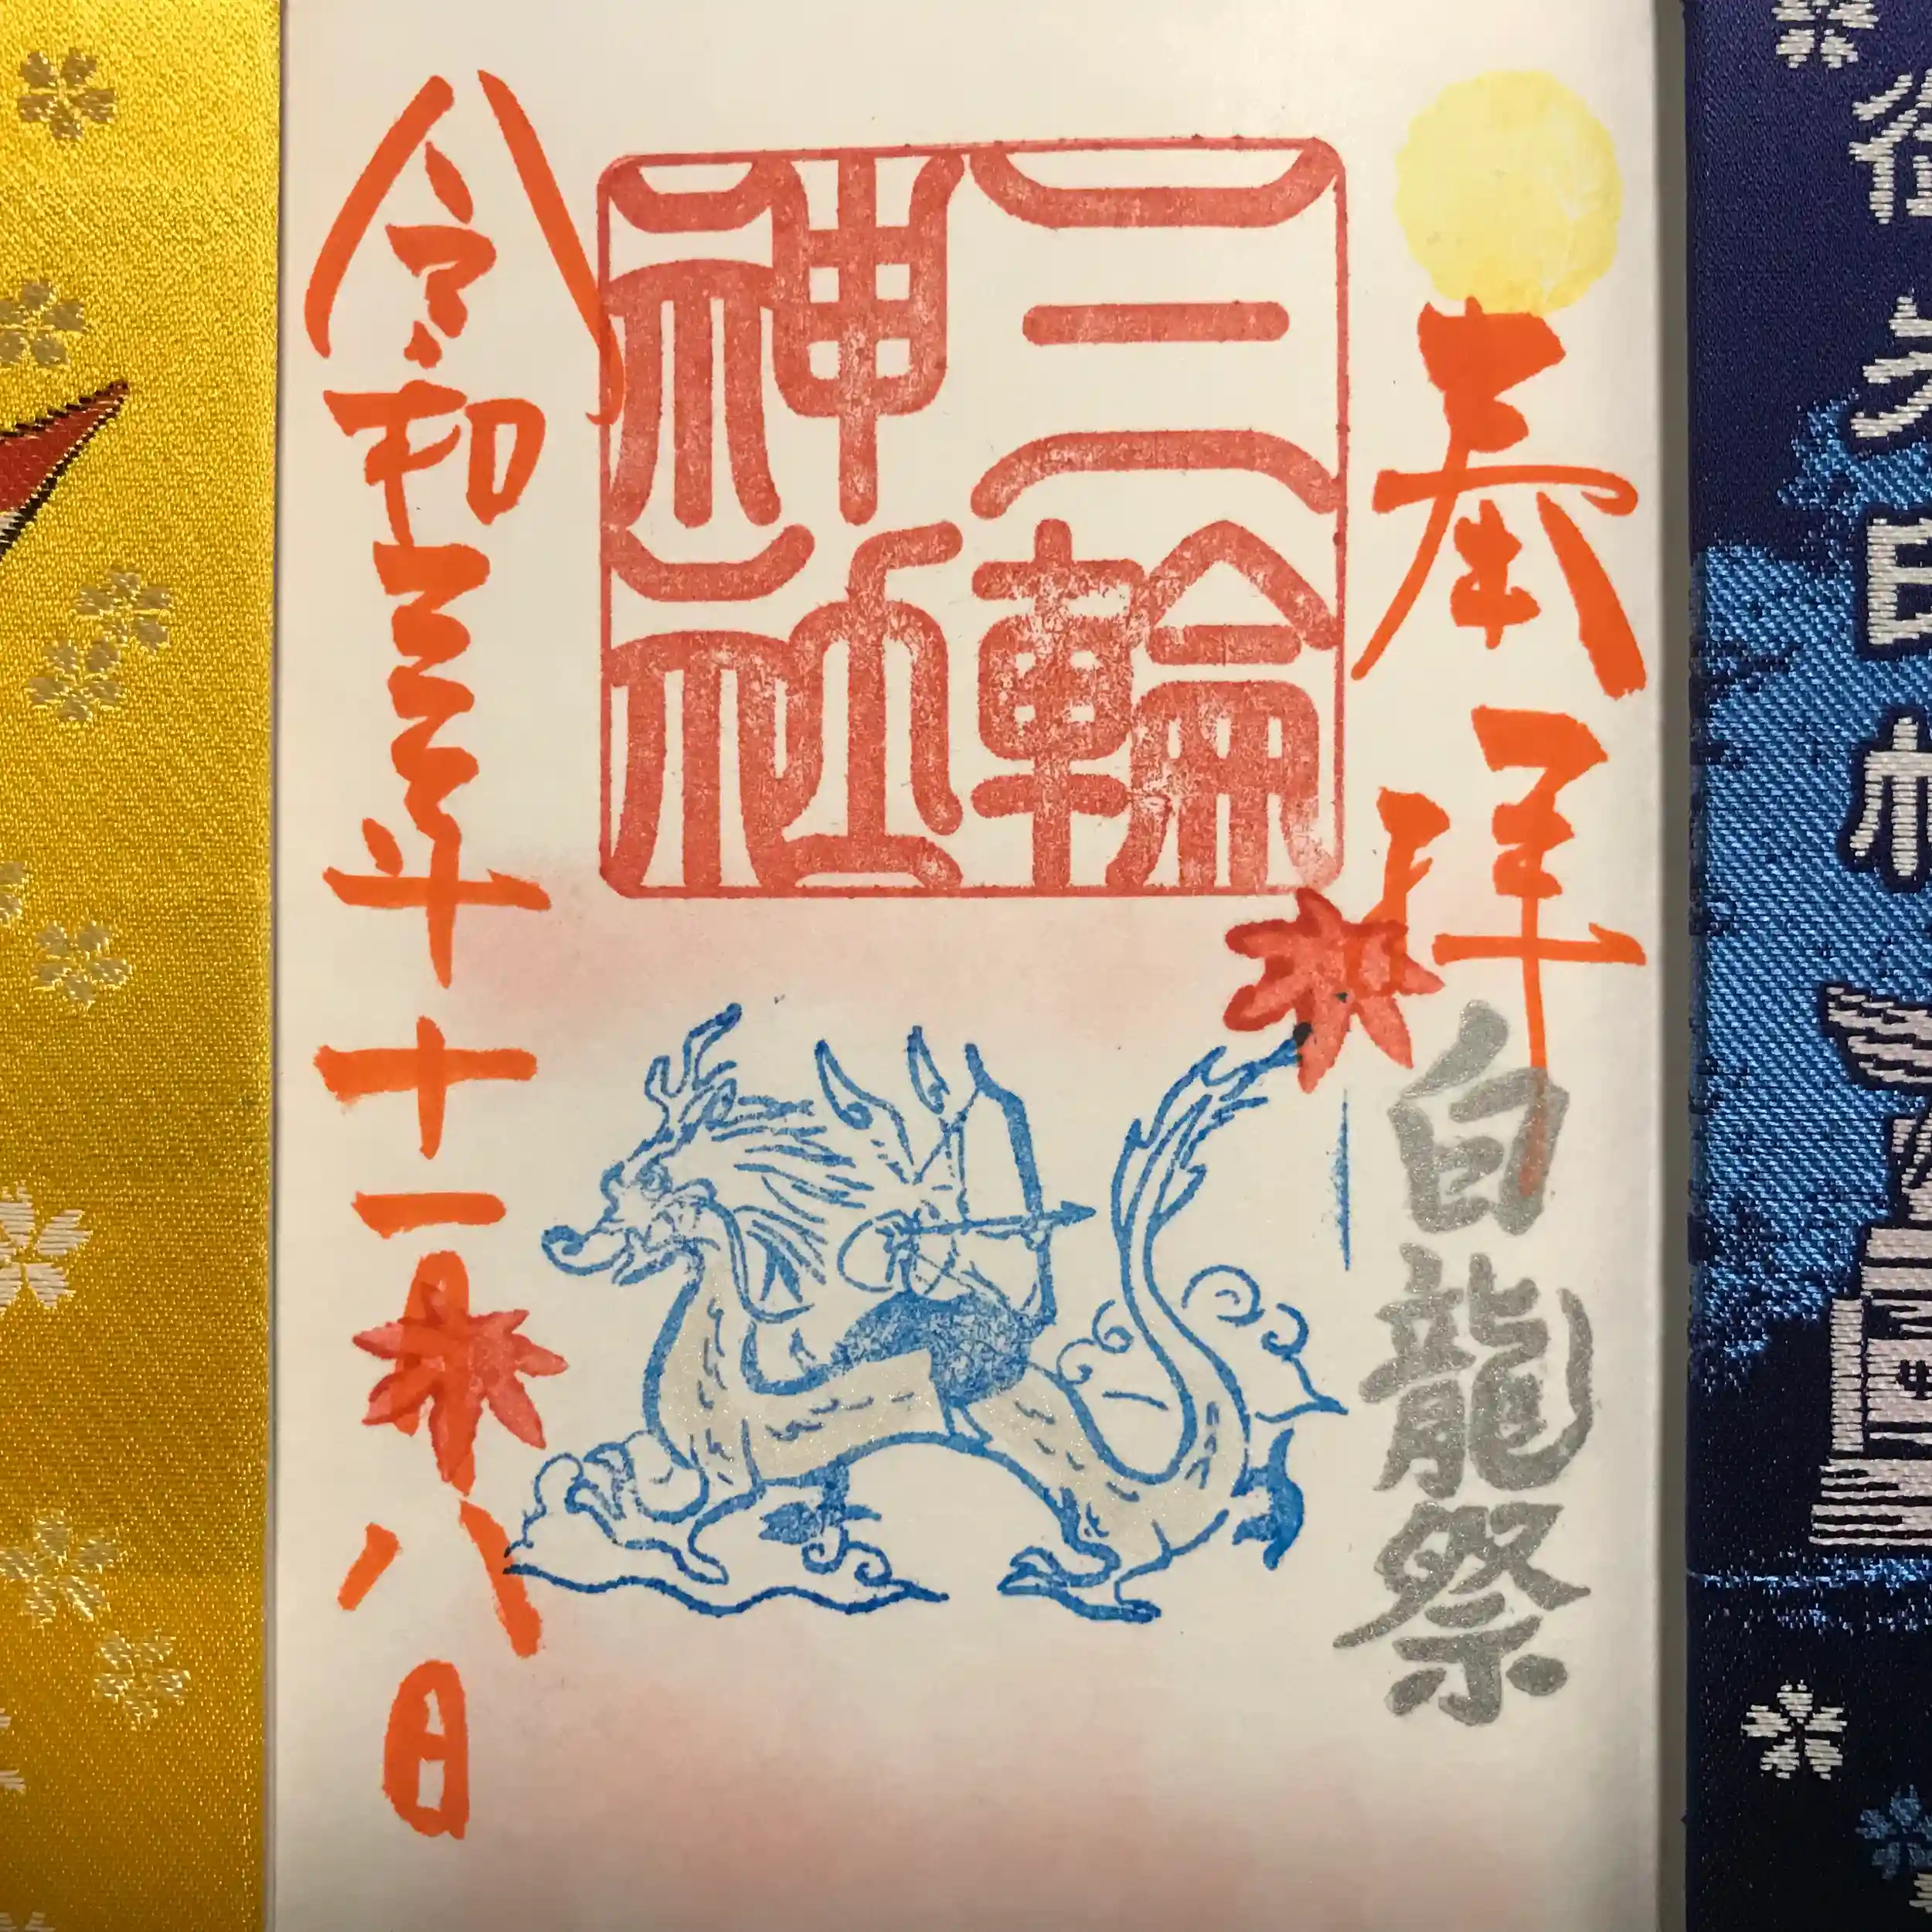 奉拝
白龍祭
三輪
神社
令和三年十一月八日